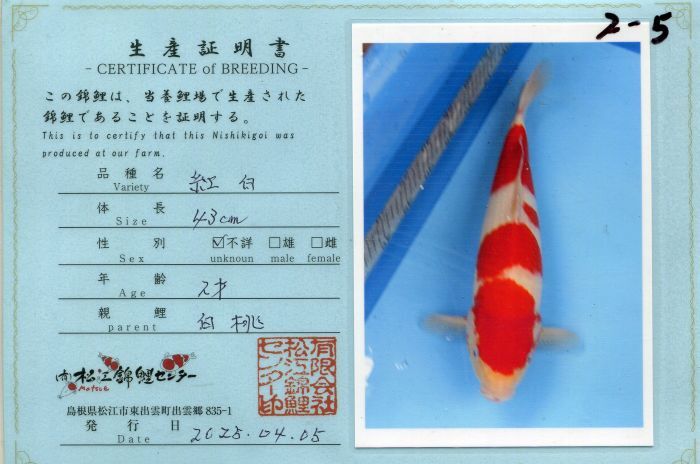 2-5
生産証明書
- CERTIFICATE of BREEDING -
この錦鯉は、当養鯉場で生産された
錦鯉であることを証明する。
This is to certify that this Nishikigoi was
produced at our farm.
品種名 紅白
Variety
体長 43cm
Size
性別 ☑不詳 □雄 □雌
Sex unknoun male female
年齢 2才
Age
親鯉 白桃
parent
(有)松江錦鯉センター
Matsue
有限会社
松江錦鯉
センター印
島根県松江市東出雲町出雲郷835-1
発行日 2025.04.05
Date